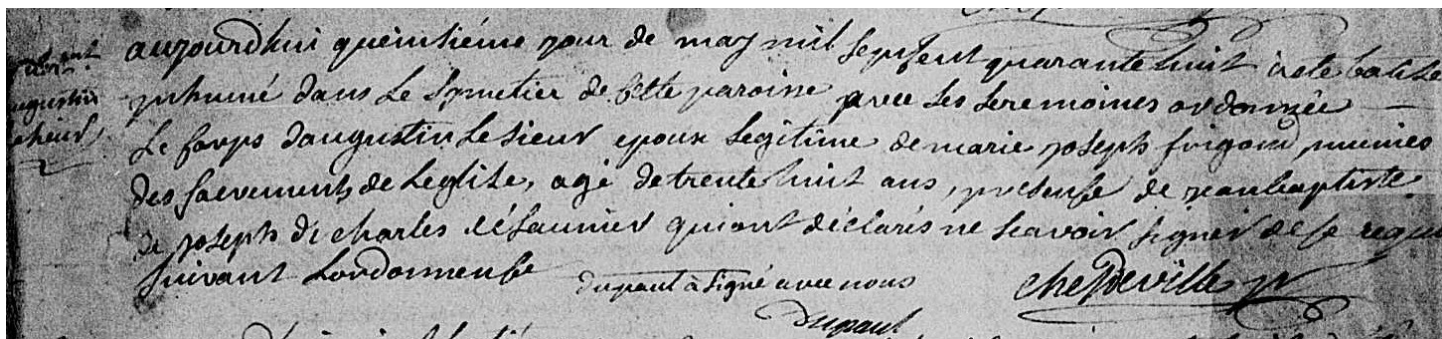 aujourdhui queinsiéme jour de may mil sept sent quarante huit a ete
inhumé dans Le Symetier de Cette paroisse avec Les seremoines ordonnée
Le Corps daugustin Le sieur epoux Legitime de marie joseph frigond, munies
des sacrements de Leglise, agé de trente huit ans, presense de jean baptiste
de joseph de charles désaunier qui ont déclarés ne scavoir signer de ce requis
suivant Lordonnense
dupaul à signé avec nous
Chefdeville ptr
Dupaul